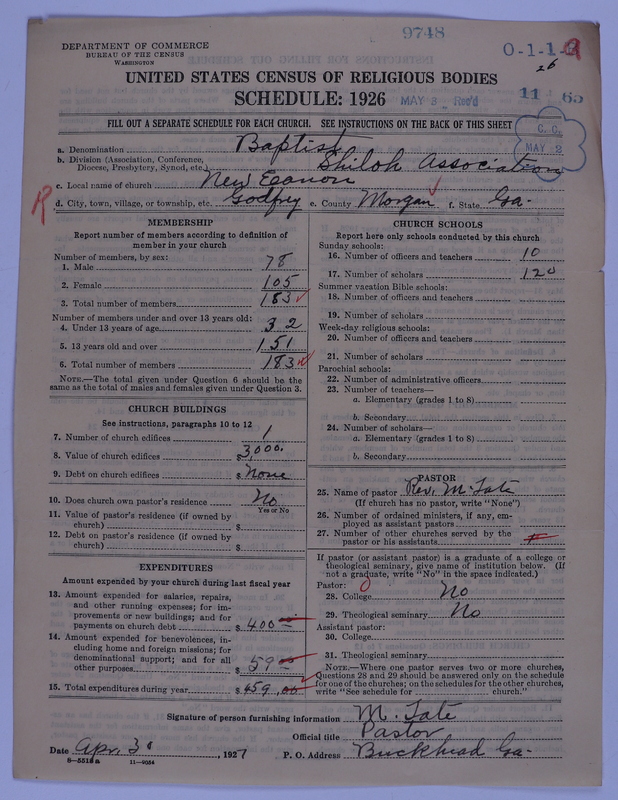 9748
DEPARTMENT OF COMMERCE
BUREAU OF THE CENSUS
WASHINGTON
0-1-1-
26
UNITED STATES CENSUS OF RELIGIOUS BODIES
SCHEDULE: 1926 MAY 3 Rec'd 11 65
FILL OUT A SEPARATE SCHEDULE FOR EACH CHURCH. SEE INSTRUCTIONS ON THE BACK OF THIS SHEET
C. C.
MAY 2
a. Denomination Baptist
b. Division (Association, Conference, Diocese, Presbytery, Synod, etc.) Shiloh Association
c. Local name of church New Canon
d. City, town, village, or township, etc. Godfrey e. County Morgan f. State Ga-
R
MEMBERSHIP
Report number of members according to definition of
member in your church
Number of members, by sex:
1. Male 78
2. Female 105
3. Total number of members 183
Number of members under and over 13 years old:
4. Under 13 years of age 32
5. 13 years old and over 151
6. Total number of members 183
NOTE.—The total given under Question 6 should be
same as the total of males and females given under Question 3.
CHURCH BUILDINGS
See instructions, paragraphs 10 to 12
7. Number of church edifices 1
8. Value of church edifices $3,000.
9. Debt on church edifices $ None
10. Does church own pastor's residence No
Yes or No
11. Value of pastor's residence (if owned by
church) $
12. Debt on pastor's residence (if owned by
church) $
EXPENDITURES
Amount expended by your church during last fiscal year
13. Amount expended for salaries, repairs,
and other running expenses; for im-
provements or new buildings; and for
payments on church debt $ 400
14. Amount expended for benevolences, in-
cluding home and foreign missions; for
denominational support; and for all
other purposes $ 59
15. Total expenditures during year $ 459.00
CHURCH SCHOOLS
Report here only schools conducted by this church
Sunday schools:
16. Number of officers and teachers 10
17. Number of scholars 120
Summer vacation Bible schools:
18. Number of officers and teachers
19. Number of scholars
Week-day religious schools:
20. Number of officers and teachers
21. Number of scholars
Parochial schools:
22. Number of administrative officers
23. Number of teachers—
a. Elementary (grades 1 to 8)
b. Secondary
24. Number of scholars—
a. Elementary (grades 1 to 8)
b. Secondary
PASTOR
25. Name of pastor Rev. M. Tate
(If church has no pastor, write "None")
26. Number of ordained ministers, if any, em-
ployed as assistant pastors
27. Number of other churches served by the
pastor or his assistants
If pastor (or assistant pastor) is a graduate of a college or
theological seminary, give name of institution below. (If
not a graduate, write "No" in the space indicated.)
Pastor:
28. College No
29. Theological seminary No
Assistant pastor:
30. College
31. Theological seminary
NOTE.—Where one pastor serves two or more churches,
Questions 28 and 29 should be answered only on the schedule
for one of the churches; on the schedules for the other churches,
write "See schedule for church."
Signature of person furnishing information M. Tate
Official title Pastor
Date Apr. 30, 1927 P. O. Address Buckhead Ga-
8—5518a 11—9054